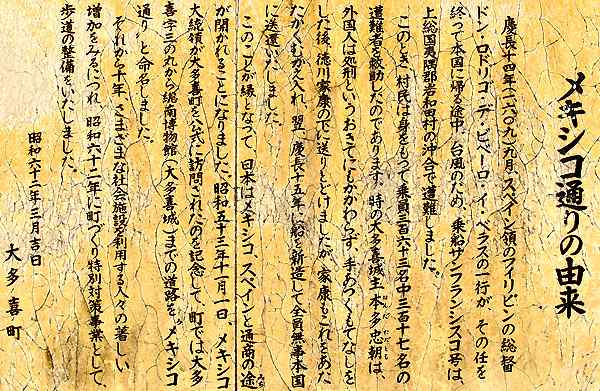 メキシコ通りの由来
慶長十四年(一六〇九)九月、スペイン領のフィリピンの総督
ドン・ロドリゴ・デ・ビベーロ・イ・ベラスコの一行が、その任を
終って本国に帰る途中、台風のため、乗船サンフランシスコ号は、
上総国夷隅郡岩和田村の沖合で遭難しました。
このとき、村民は身をもって乗員三百六十三名中三百十七名の
遭難者を救助したのであります。時の大多喜城主本多忠朝は、
外国人は処刑というおきてにもかかわらず、手あつくもてなしを
した後、徳川家康の下に送りとどけましたが、家康もこれをあた
たかくむかえ入れ、翌慶長十五年、船を新造して全員無事本国
に送還いたしました。
このことが縁となって、日本はメキシコ、スペインと通商の途
が開かれることになりました。昭和五十三年十一月一日、メキシコ
大統領が大多喜町を公式に訪問されたのを記念して、町では大多
喜字三の丸から総南博物館(大多喜城)までの道路を、メキシコ
通り、と命名しました。
それから十年、さまざまな社会施設を利用する人々の著しい
増加をみるにつれ、昭和六十二年に町づくり特別対策事業として、
歩道の整備をいたしました。
昭和六十二年三月吉日
大多喜町